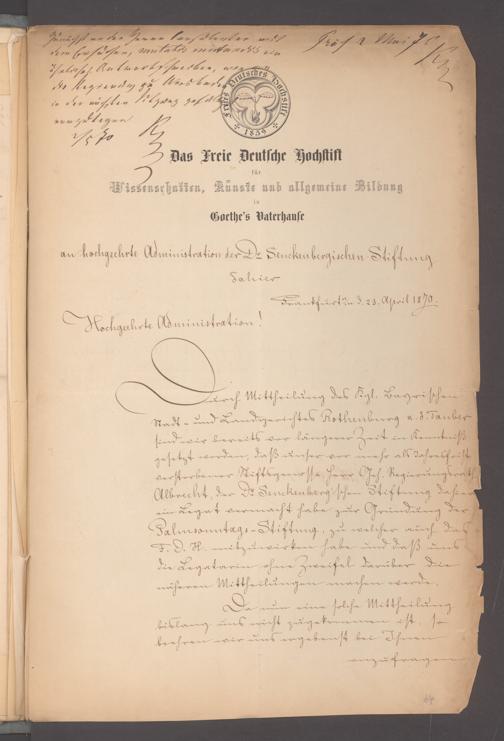 Praes. 2 Mai 70
in der nächsten Sitzung
vorzulegen
2/5 70
Freies Deutsches Hochstift
1859
Das Freie Deutsche Hochstift
für
Wissenschaften, Künste und allgemeine Bildung
in
Goethe's Vaterhause
an hochgeehrte Administration der Dr Senckenbergischen Stiftung
dahier
Frankfurt a/m d. 23. April 1870.
Hochgeehrte Administration!
Durch Mittheilung des Kgl. Bayrischen
Stadt- und Landgerichtes Rothenburg a. d. Tauber
sind wir bereits vor längerer Zeit in Kenntniß
gesetzt worden, daß unser vor mehr als Jahresfrist
verstorbener Stiftsgenosse, Herr Geh. Regierungsrath
Albrecht, der Dr Senckenberg'schen Stiftung dahier
ein Legat vermacht habe zur Gründung der
Palmsonntags-Stiftung, zu welcher auch das
F. D. H. mitzuwirken habe und daß uns
die Legatarin ohne Zweifel darüber die
näheren Mittheilungen machen werde.
Da nun eine solche Mittheilung
bislang uns nicht zugekommen ist, so
beehren wir uns ergebenst bei Ihnen
anzufragen